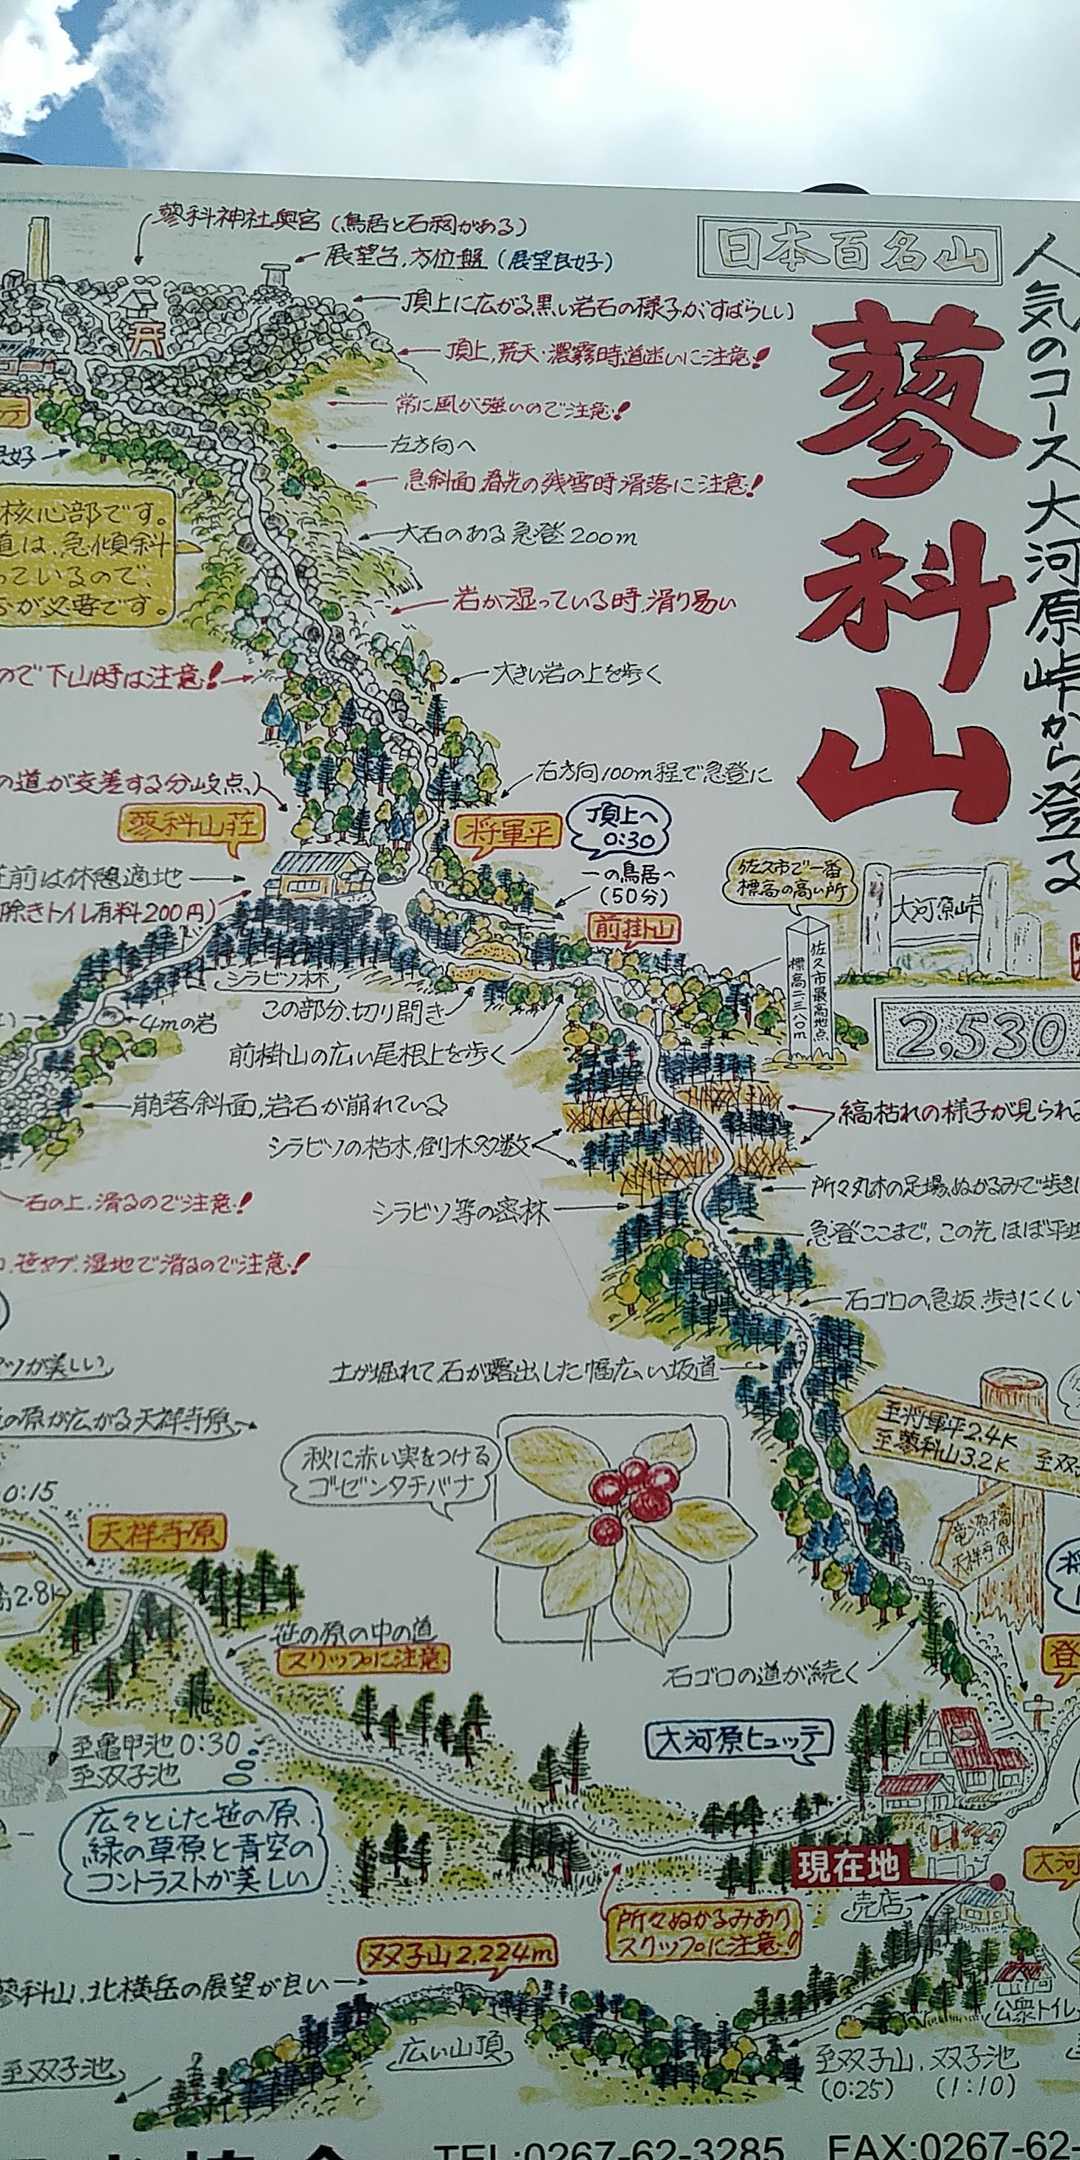 日本百名山
人気のコース大河原峠から登る
蓼科山
蓼科神社奥宮(鳥居と石祠がある)
展望台,方位盤(展望良好)
頂上に広がる,黒い岩石の様子がすばらしい
頂上,荒天・濃霧時道迷いに注意!
常に風が強いので注意!
左方向へ
急斜面,春先の残雪時滑落に注意!
核心部です。
道は,急傾斜
っているので、
が必要です。
大石のある急登200m
岩が湿っている時,滑り易い
大きい岩の上を歩く
ので下山時は注意!
の道が交差する分岐点、)
右方向100m程で急登に
蓼科山荘
将軍平
頂上へ
0:30
一の鳥居へ
(50分)
前は休憩適地
除きトイレ有料200円)
前掛山
佐久市で一番
標高の高い所
佐久市最高地点
標高二三八〇m
大河原峠
2,530
シラビソ林
この部分,切り開き
4mの岩
前掛山の広い尾根上を歩く
崩落斜面,岩石が崩れている
縞枯れの様子が見られる
シラビソの枯木,倒木多数
所々丸木の足場,ぬかるみで歩き
石の上,滑るので注意!
シラビソ等の密林
急登ここまで,この先,ほぼ平坦
笹ヤブ,湿地で滑るので注意!
石ゴロの急坂,歩きにくい
ツが美しい
土が掘れて石が露出した幅広い坂道
の原が広がる天祥寺原へ
至将軍平2.4K
至蓼科山3.2K
至双
秋に赤い実をつける
ゴゼンタチバナ
竜源橋
天祥寺原
0:15
天祥寺原
2.8K
笹の原の中の道
スリップに注意
石ゴロの道が続く
登
大河原ヒュッテ
至亀甲池0:30
至双子池
広々とした笹の原
緑の草原と青空の
コントラストが美しい
現在地
大河
売店
所々ぬかるみあり
スリップに注意!
双子山2,224m
蓼科山,北横岳の展望が良い
公衆トイレ
広い山頂
至双子池
至双子山,双子池
(0:25) (1:10)
TEL:0267-62-3285 FAX:0267-62-